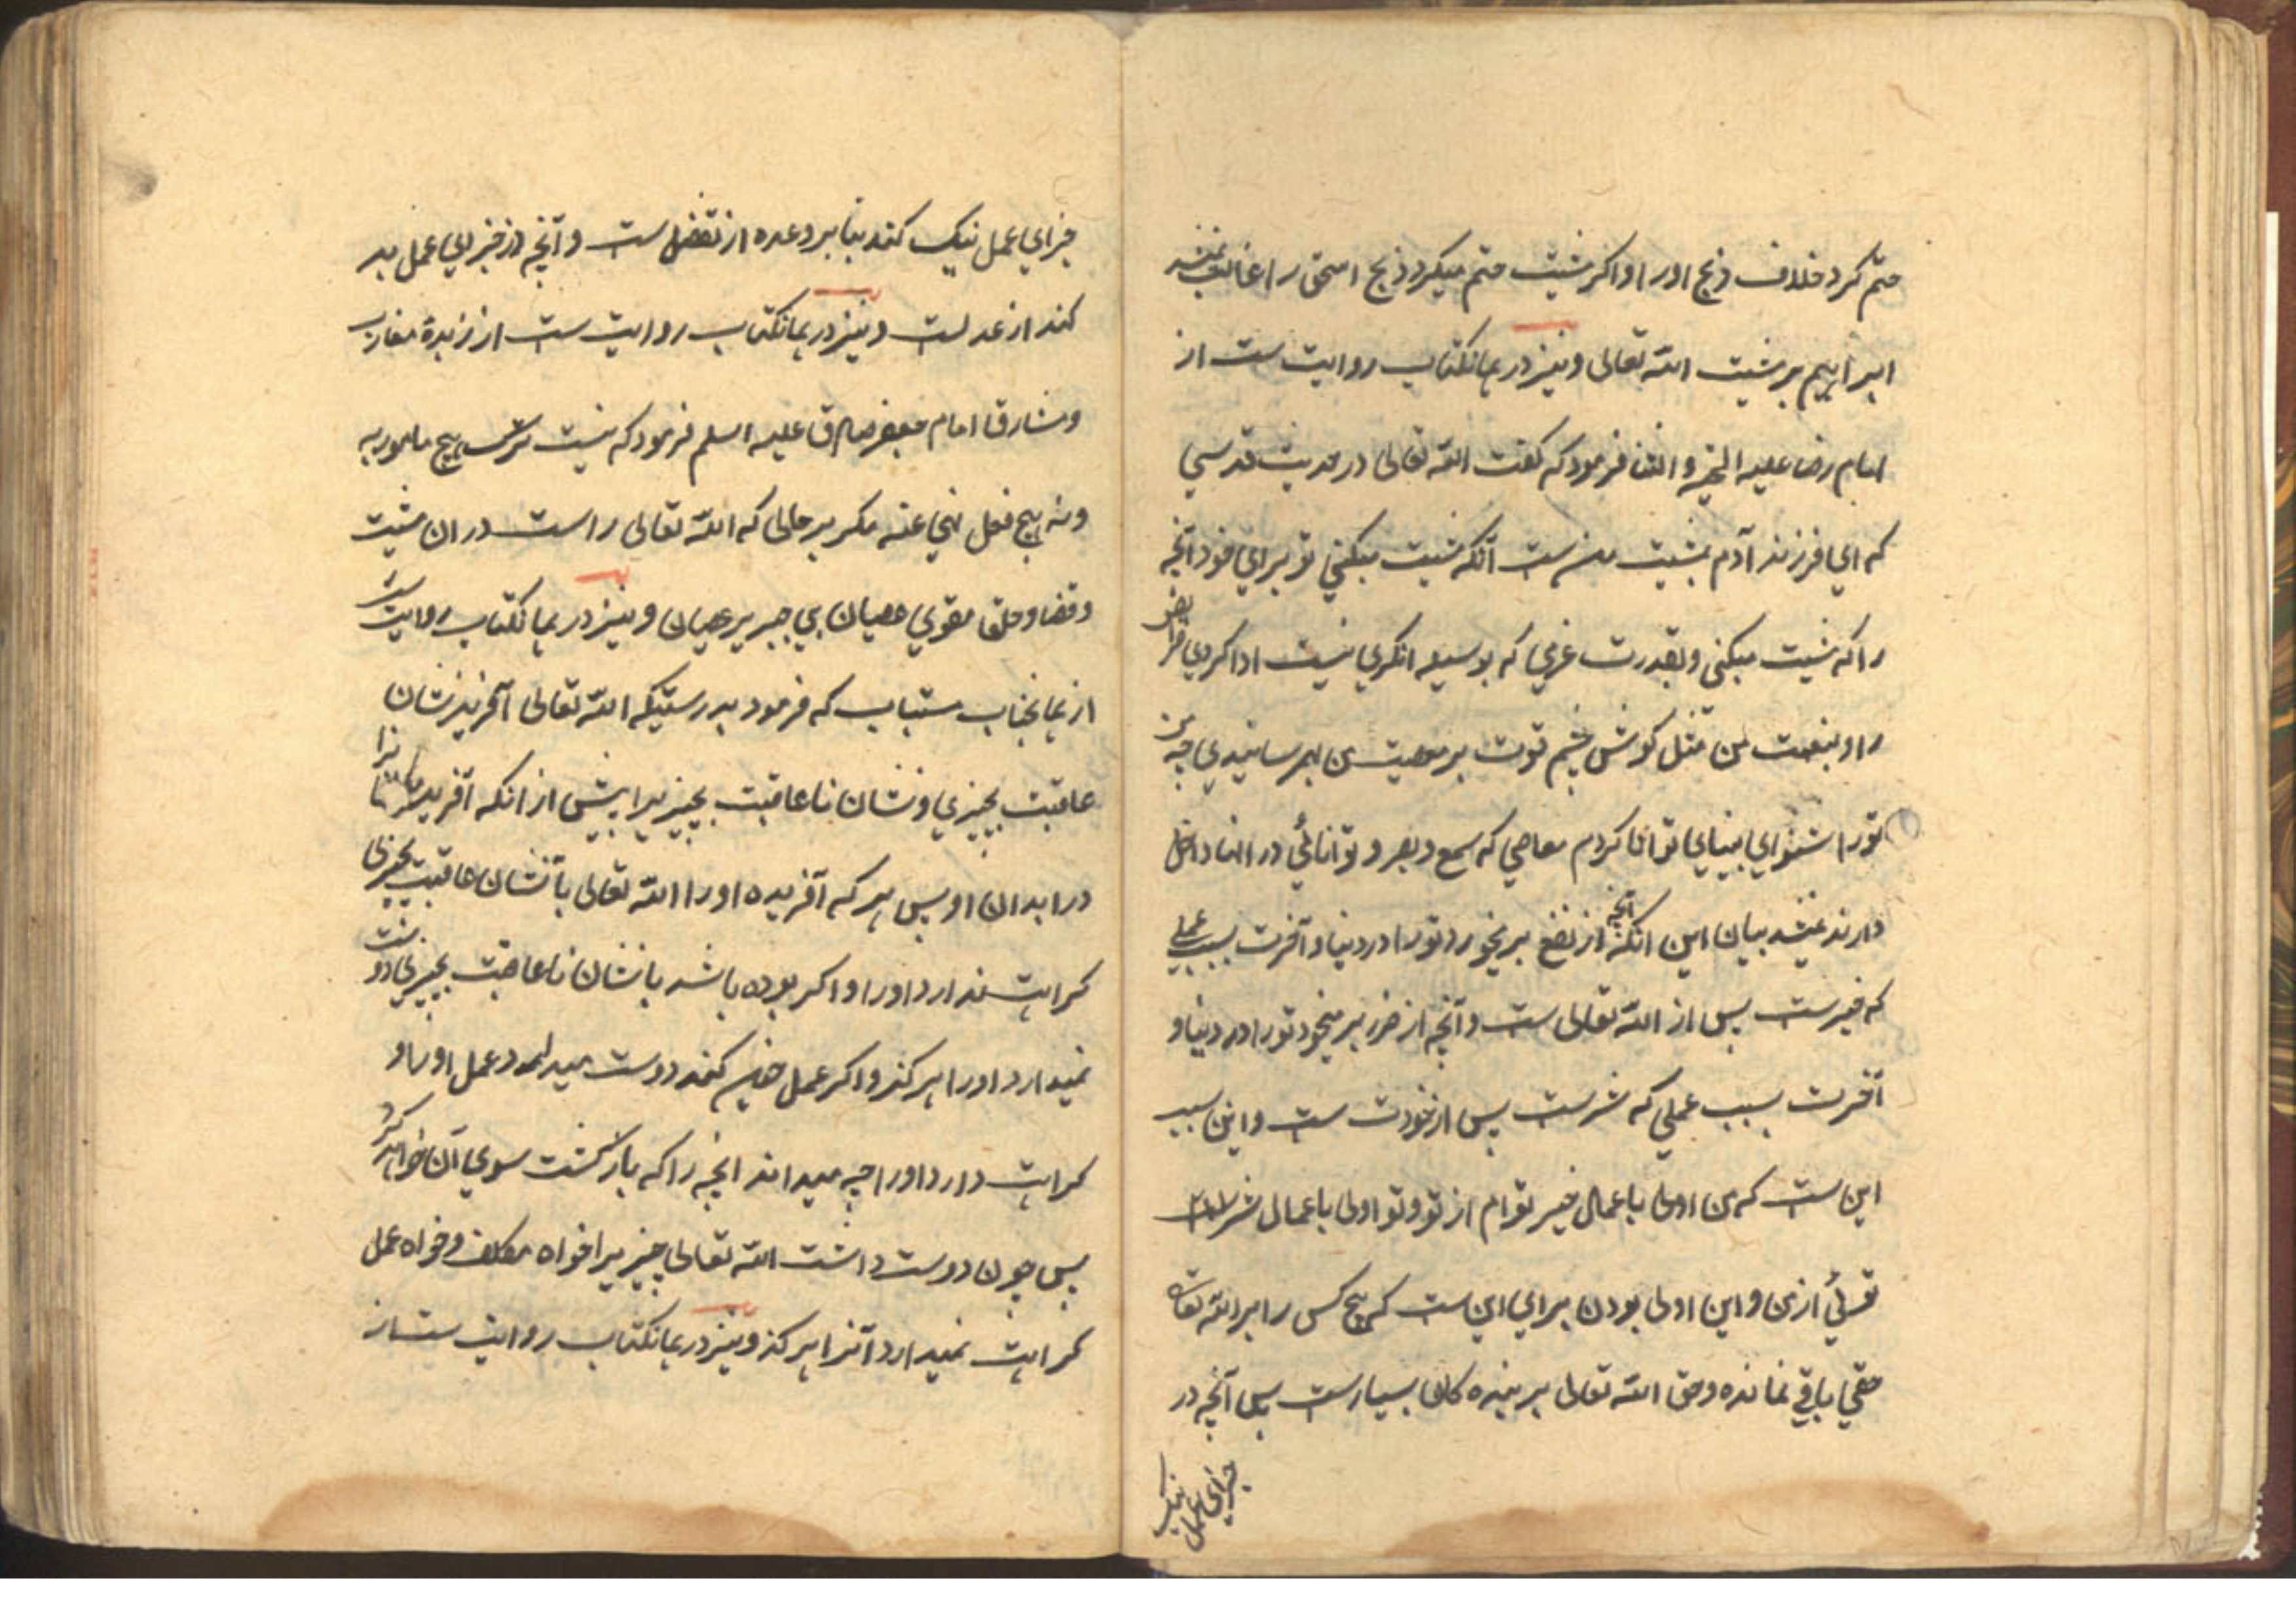 حتم کرد خلاف ذبح اورا و اکر مشیت حتم میکرد ذبح اسحق را غالب نمیشد
ابراهیم بر مشیت الله تعالی و نیز در همانکتاب روایت ست از
امام رضا علیه التحیه و الثنا فرمود که گفت الله تعالی در حدیث قدسی
که ای فرزند آدم بمشیت من ست آنکه مشیت میکنی تو برای خود آنچه
را که مشیت میکنی و بقدرت که بوسیله انکری نیست ادا کردی فرایض
را و بنعمت من مثل کوش چشم قوت بر معصیت من بهم رسانیدی چه من
تورا شنوای بینای توانا کردم معاصی که سمع و بصر و توانائی در انها دخل
دارند بیان این انکه آنچه از نفع بر میخورد تورا در دنیا و آخرت بسبب عملی
که خیرست پس از الله تعالی ست و آنچه از ضرر بر میخورد تورا در دنیا و
آخرت بسبب عملی که شرست پس از خودت ست و این بسبب
این ست که من اولی باعمال خیر توام از تو و تو اولی باعمال شر
توئی از من و این اولی بودن برای این ست که هیچ کس را بر الله تعالی
حقی باقی نمانده و حق الله تعالی بر بنده کان بسیارست پس آنچه در
جزای عمل نیک
جزای عمل نیک کند بنا بر وعده از تفضل ست و آنچه در جزای عمل بد
کند از عدلست و نیز در همانکتاب روایت ست از زبدة مغارب
و مشارق امام جعفر صادق علیه اسلم فرمود که نیست ترک هیچ مامور به
و نه هیچ فعل نهی عنه مکر بر حالی که الله تعالی راست در ان مشیت
و قضا و خلق مقوی عصیان بی جبر بر عصیان و نیز در همانکتاب روایت ست
از همانجناب مستطاب که فرمود بدرستیکه الله تعالی آفرید نشان
عاقبت بخیری و نشان نا عاقبت بخیریرا پیش از انکه آفرید
در ابدان او پس هر که آفریده اورا الله تعالی بآنشان عاقبت بخیری
کراهت ندارد اورا و اکر بوده باشد بانشان نا عاقبت بخیری دوست
نمیدارد اورا هرکز و اکر عمل خیر کند دوست میدارد عمل اورا و
کراهت دارد اورا چه میداند انچه را که بازکشت سوی آن خواهد کرد
پس چون دوست داشت الله تعالی چیزیرا خواه مکلف و خواه عمل
کراهت نمیدارد آنرا هرکز و نیز در همانکتاب روایت ست از